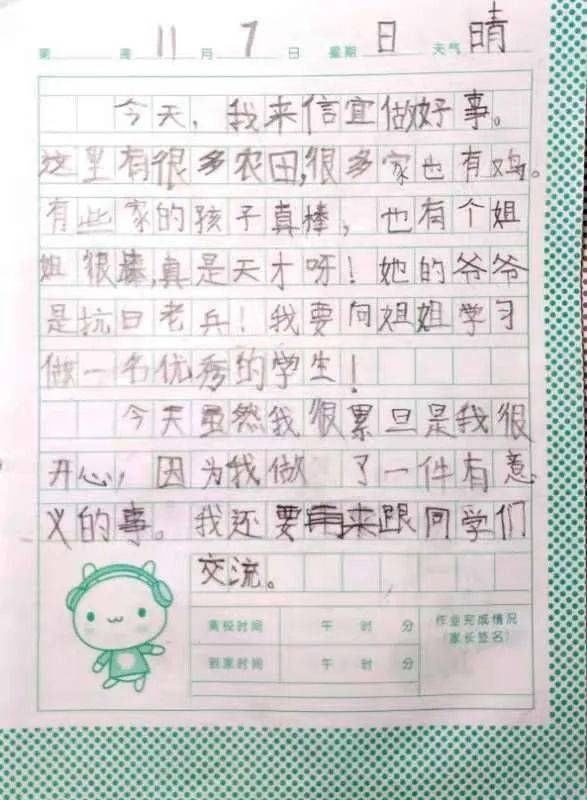 第 周 11 月 7 日 星期 日 天气 晴
今天，我来信宜做好事。
这里有很多农田,很多家也有鸡。
有些家的孩子真棒，也有个姐
姐很棒,真是天才呀！她的爷爷
是抗日老兵！我要向姐姐学习
做一名优秀的学生！
今天虽然我很累旦是我很
开心，因为我做 了一件有意
义的事。我还要再来跟同学们
交流。
离校时间 午 时 分
到家时间 午 时 分
作业完成情况
（家长签名）